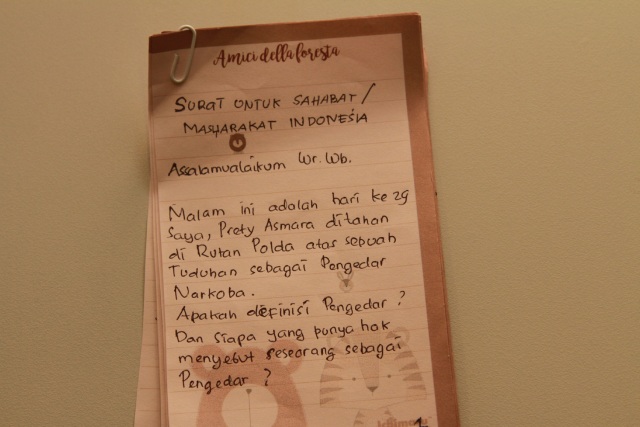 Amici della foresta
SURAT UNTUK SAHABAT /
MASYARAKAT INDONESIA
Assalamualaikum Wr. Wb.
Malam ini adalah hari ke 29
Saya, Prety Asmara ditahan
di Rutan Polda atas sebuah
Tuduhan sebagai Pengedar
Narkoba.
Apakah definisi Pengedar ?
Dan siapa yang punya hak
menyebut seseorang sebagai
Pengedar ?